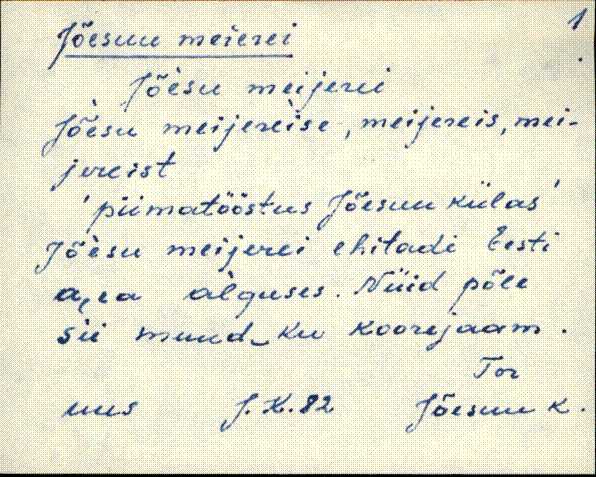 1
Jõesuu meierei
Jõèsu meijerei
Jõèsu meijereìse, meijereis, mei-
jereist
'piimatööstus Jõesuu külas'
Jõèsu meijerei ehitadi Eesti
aea àlguses. Nüid põle
sii muud_ku koorejaam.
Tor
uus J.K.82 Jõesuu k.